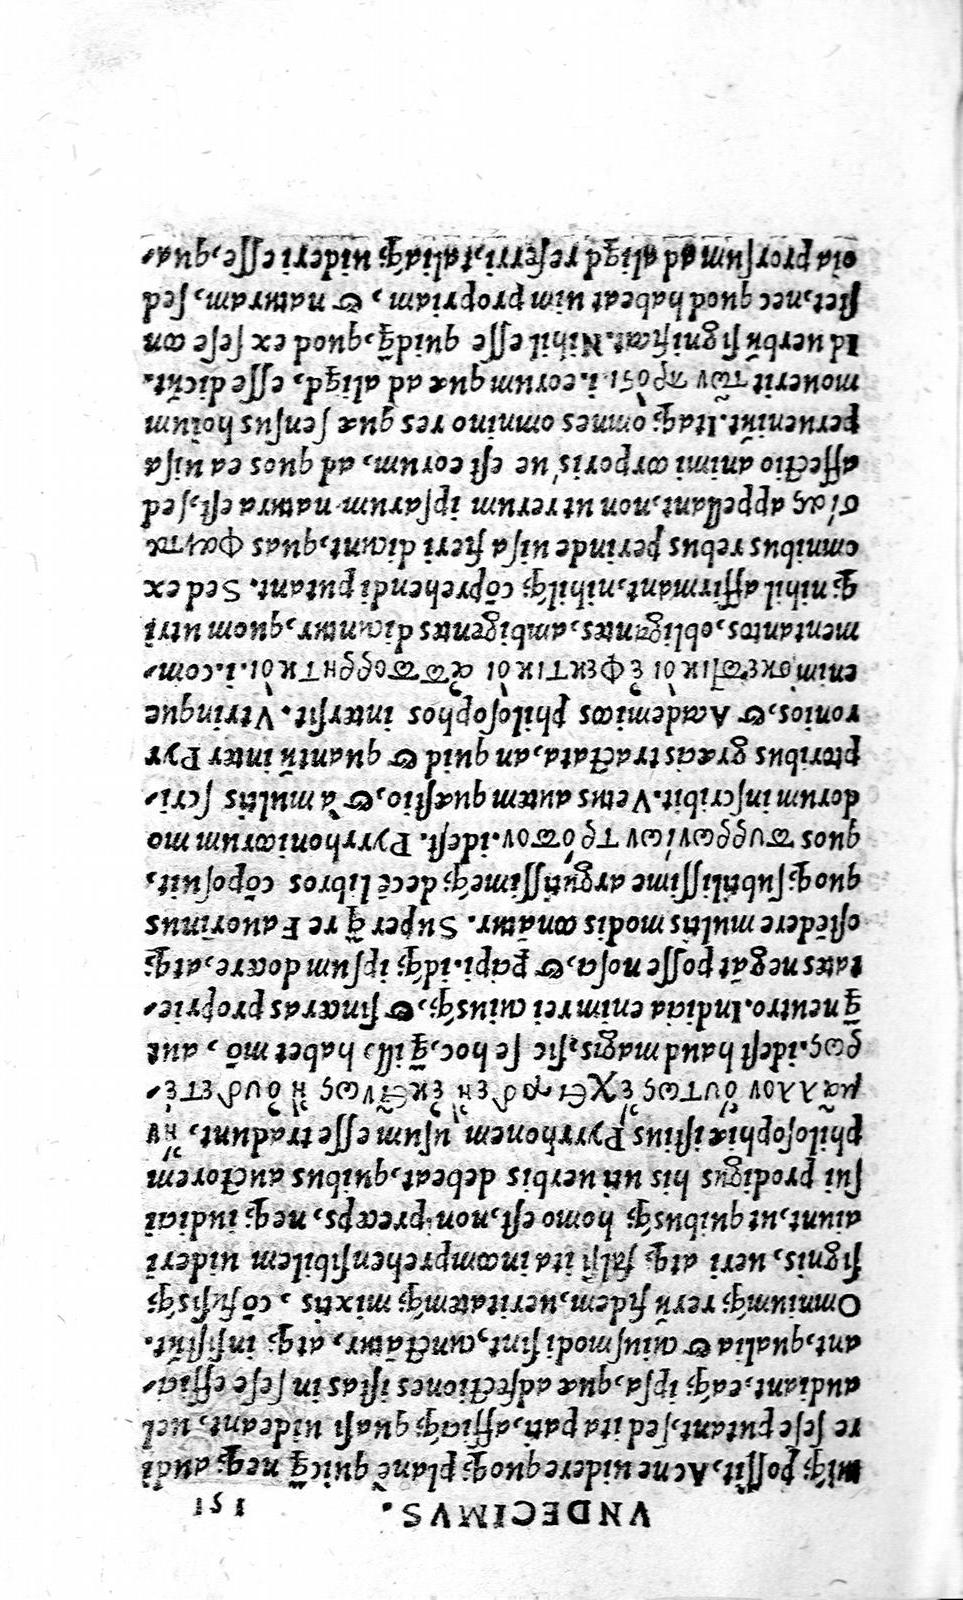 VNDECIMVS. 151
niſq; poſſit, Ac ne uidere quoq; planè quicq̃ neq; audi
re ſeſe putant, ſed ita pati, afficiq; quaſi uideant, uel
audiant, eaq; ipſa, quæ adfectiones iſtas in ſeſe effici-
ant, qualia & cuiuſmodi ſint, cunctãtur, atq; inſiſtũt.
Omniumq; rerũ fidem, ueritatemq; mixtis, cõfuſisq;
ſignis, ueri atq; falſi ita incomprehenſibilem uideri
aiunt, ut quibusq; homo eſt, non præceps, neq; iudicii
ſui prodigus his uti uerbis debeat, quibus auctorem
philoſophiæ iſtius Pyrrhonem uſum eſſe tradunt, ἤ οὐ
μᾶλλον οὕτως ἔχει τόδε ἢ ἐκείνως ἢ οὐδετέ-
ρως. ideſt haud magis ſic ſe hoc, q̃ illd habet mõ, aut
q̃ neutro. Indicia enim rei cuiusq;, & ſinceras proprie-
tates negãt poſſe noſci, & ꝑcipi. idq; ipſum docere, atq;
oſtẽdere multis modis conãtur. Super q̃ re Fauorinus
quoq; ſubtiliſſime argutiſſimeq; decẽ libros cõpoſuit,
quos πυρρωνίων τρόπον. ideſt. Pyrrhonicorum mo
dorum inſcribit. Vetus autem quæſtio, & à multis ſcri-
ptoribus græcis tractata, an quid & quantũ inter Pyr
ronios, & Academicos philoſophos interſit. Vtrinque
enim σκεπτικοὶ ἐφεκτικοὶ ἀπορρητικοί. i. com-
mentantes, obligantes, ambigentes dicuntur, quom utri
q; nihil affirmant, nihilq; cõprehendi putant. Sed ex
omnibus rebus perinde uiſa fieri dicunt, quas φαντα
σίας appellant, non ut rerum ipſarum natura eſt, ſed
affectio animi corporis ue eſt eorum, ad quos ea uiſa
perueniũt. Itaq; omnes omnino res quæ ſenſus hoĩum
mouerit τῶν πρός τι. i. eorum quæ ad aliqd, eſſe dicũt.
Id uerbũ ſignificat. Nihil eſſe quidq̃, quod ex ſeſe con
ſtet, nec quod habeat uim propriam, & naturam, ſed
oĩa prorſum ad aliqd referri, taliaq; uideri eſſe, qua-